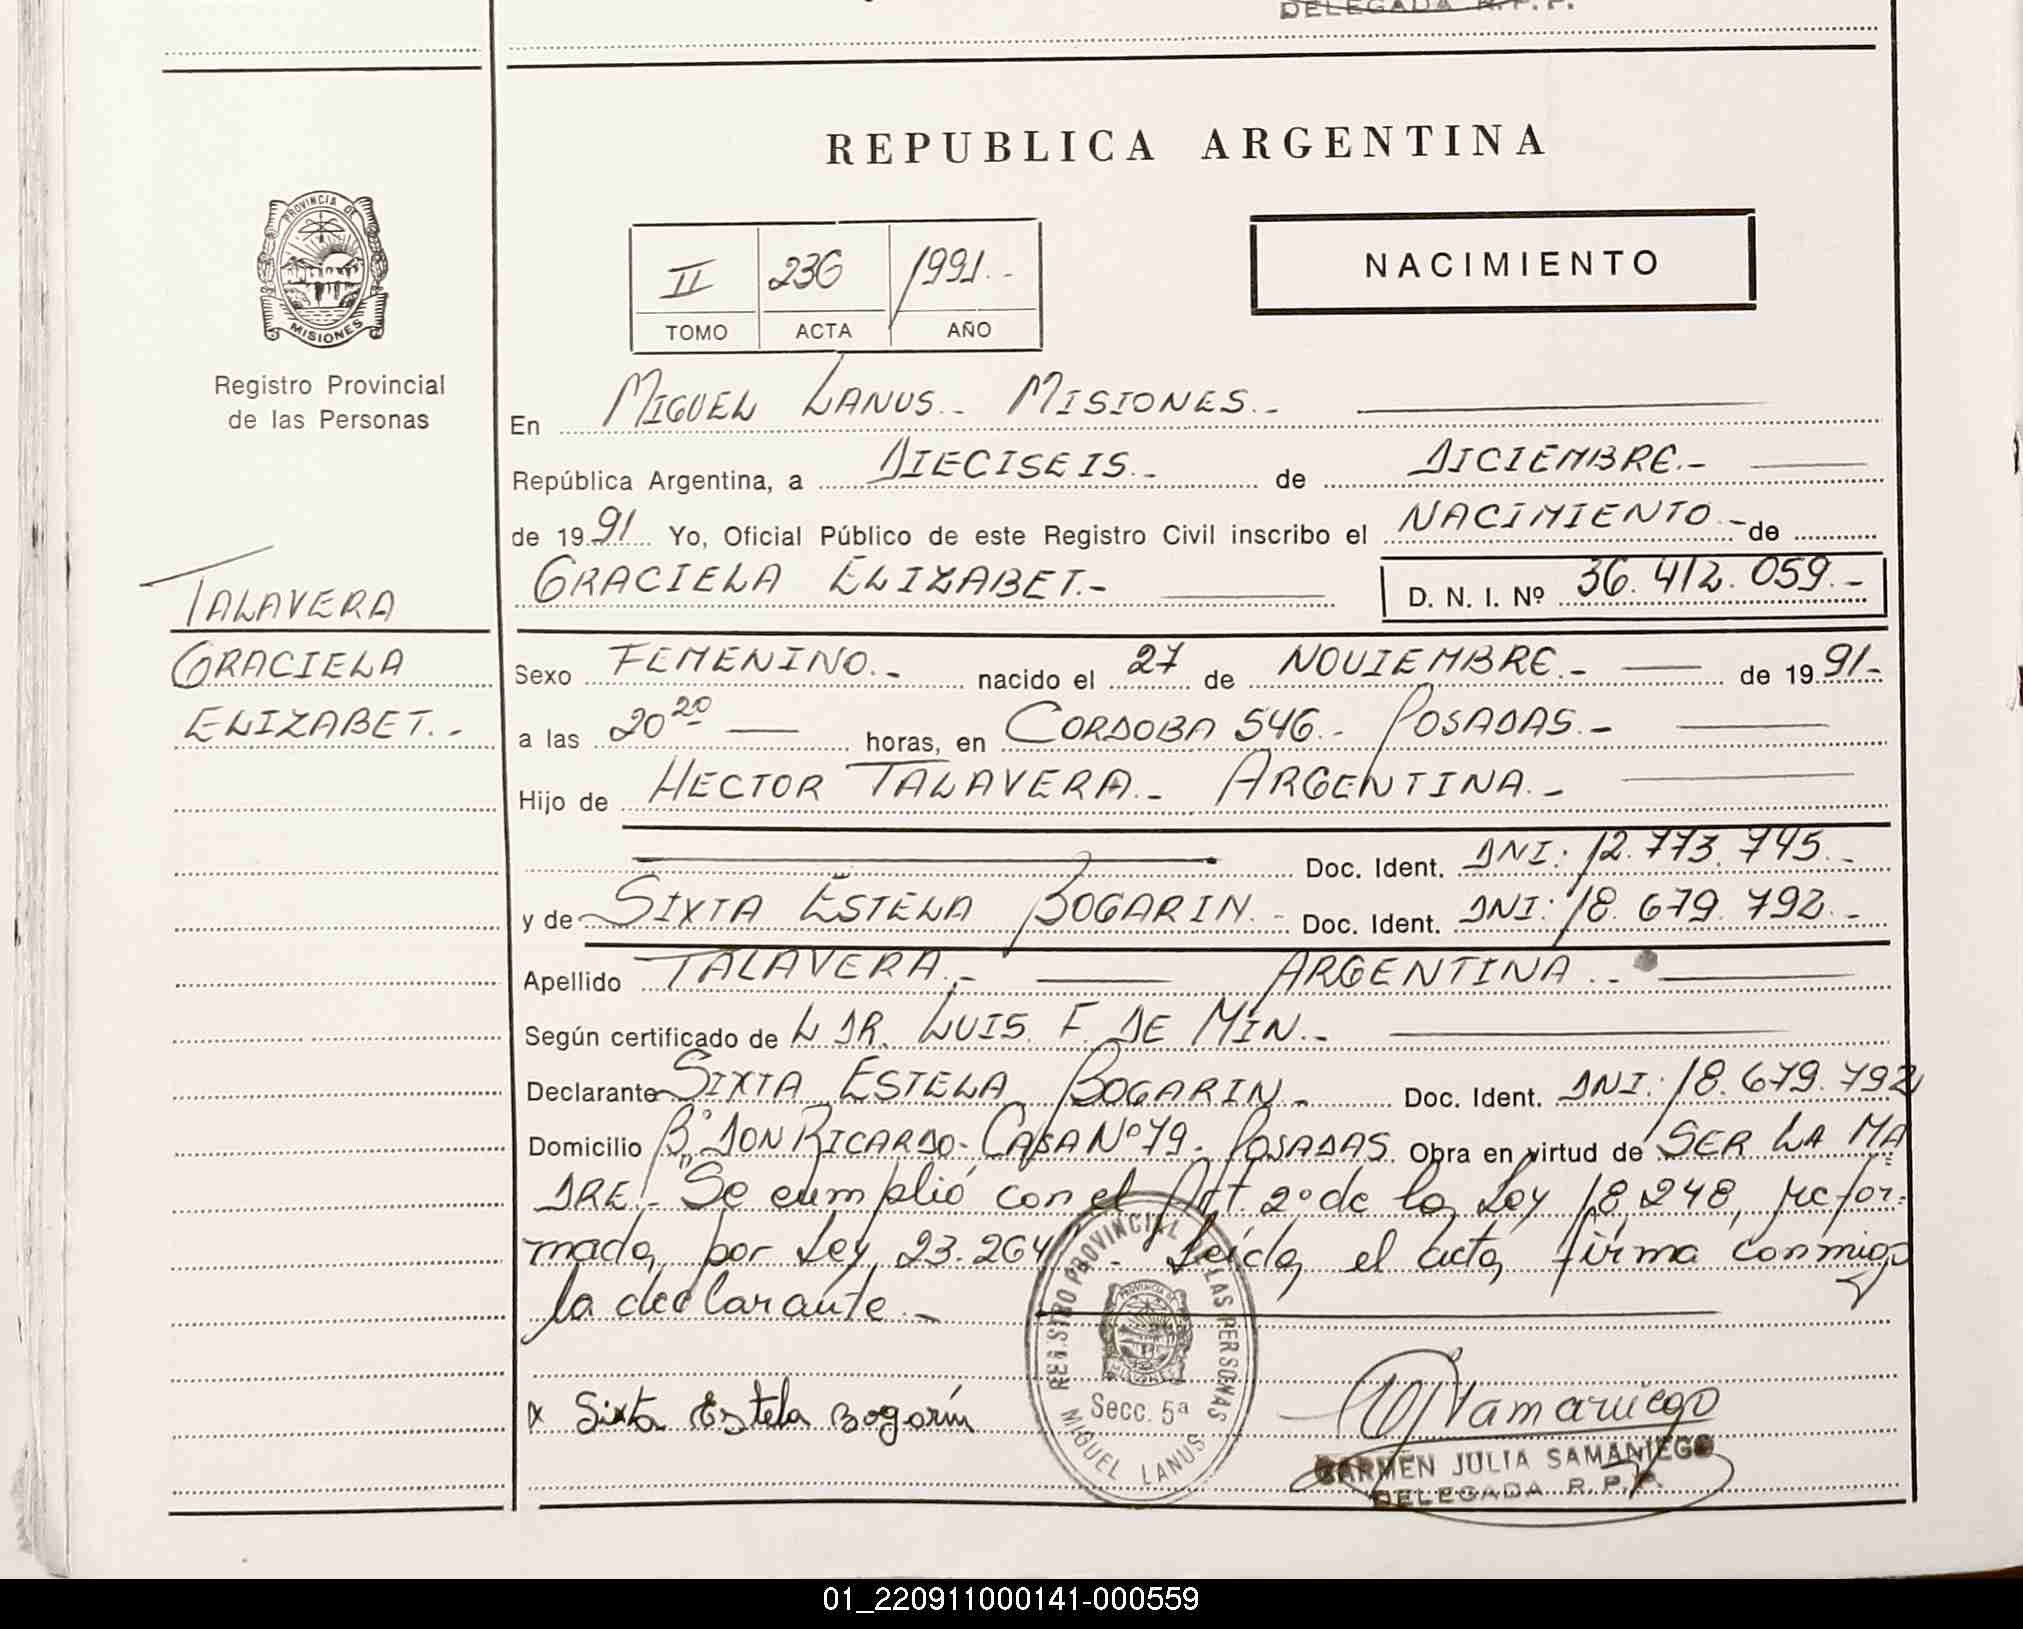 DELEGADA R.P.P.
REPUBLICA ARGENTINA
PROVINCIA DE
MISIONES
Registro Provincial
de las Personas
II 236 1991.-
TOMO ACTA AÑO
NACIMIENTO
En MIGUEL LANUS.- MISIONES.-
República Argentina, a DIECISEIS.- de DICIEMBRE.-
de 1991 Yo, Oficial Público de este Registro Civil inscribo el NACIMIENTO.- de
GRACIELA ELIZABET.- D. N. I. Nº 36.412.059.-
TALAVERA
GRACIELA
ELIZABET.-
Sexo FEMENINO.- nacido el 27 de NOVIEMBRE.- de 1991.-
a las 20 20 horas, en CORDOBA 546.- POSADAS.-
Hijo de HECTOR TALAVERA.- ARGENTINA.-
Doc. Ident. DNI: 12.773.745.-
y de SIXTA ESTELA BOGARIN.- Doc. Ident. DNI: 18.679.792.-
Apellido TALAVERA.- ARGENTINA.-
Según certificado de L DR. LUIS. F. DE MIN.-
Declarante SIXTA ESTELA BOGARIN.- Doc. Ident. DNI: 18.679.792
Domicilio Bº DON RICARDO- CASA Nº 79- POSADAS. Obra en virtud de SER LA MA=
DRE.- "Se cumplió con el Art. 2º de la Ley 18.248, refor-
mada por Ley 23.264".- Leída el acta, firma conmigo
la declarante.-
REGISTRO PROVINCIAL DE LAS PERSONAS
Secc. 5ª
MIGUEL LANUS
x Sixta Estela Bogarín
CJSamaniego
CARMEN JULIA SAMANIEGO
DELEGADA R.P.P.
01_220911000141-000559